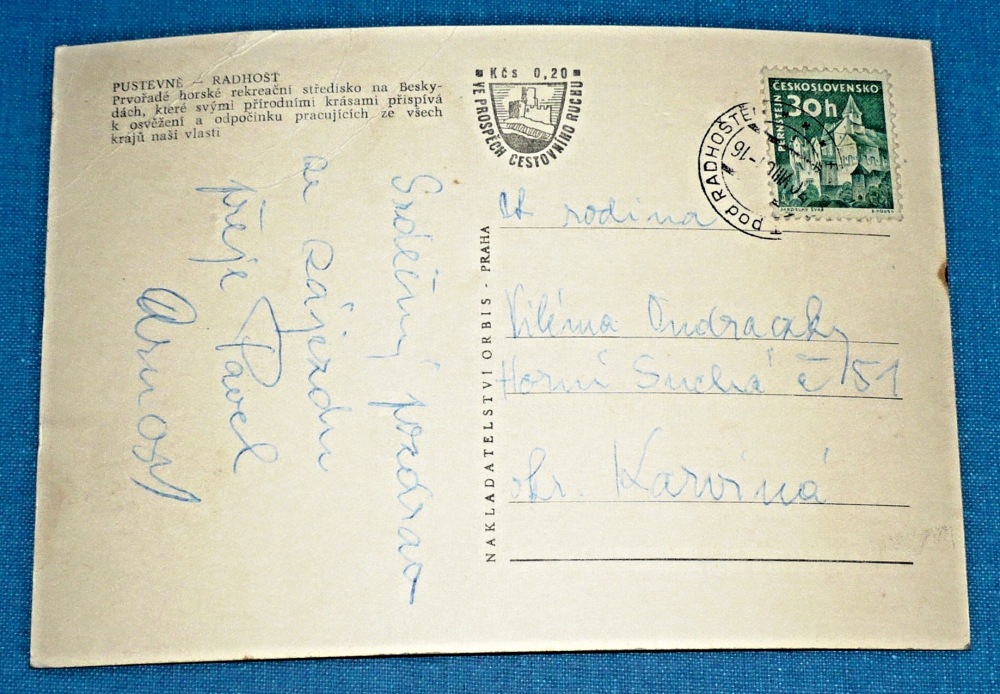 PUSTEVNĚ — RADHOSŤ
Prvořadé horské rekreační středisko na Besky-
dách, které svými přírodními krásami přispívá
k osvěžení a odpočinku pracujících ze všech
krajů naší vlasti
Srdečný pozdrav
ze zájezdu
přeje Pavel
Arnošt
NAKLADATELSTVÍ ORBIS - PRAHA
Kčs 0,20
VE PROSPĚCH CESTOVNÍHO RUCHU
pod RADHOŠTĚM
ČESKOSLOVENSKO
30h
PERNŠTEJN
rodina
Viléma Ondraczky
Horní Suchá č 151
okr. Karviná